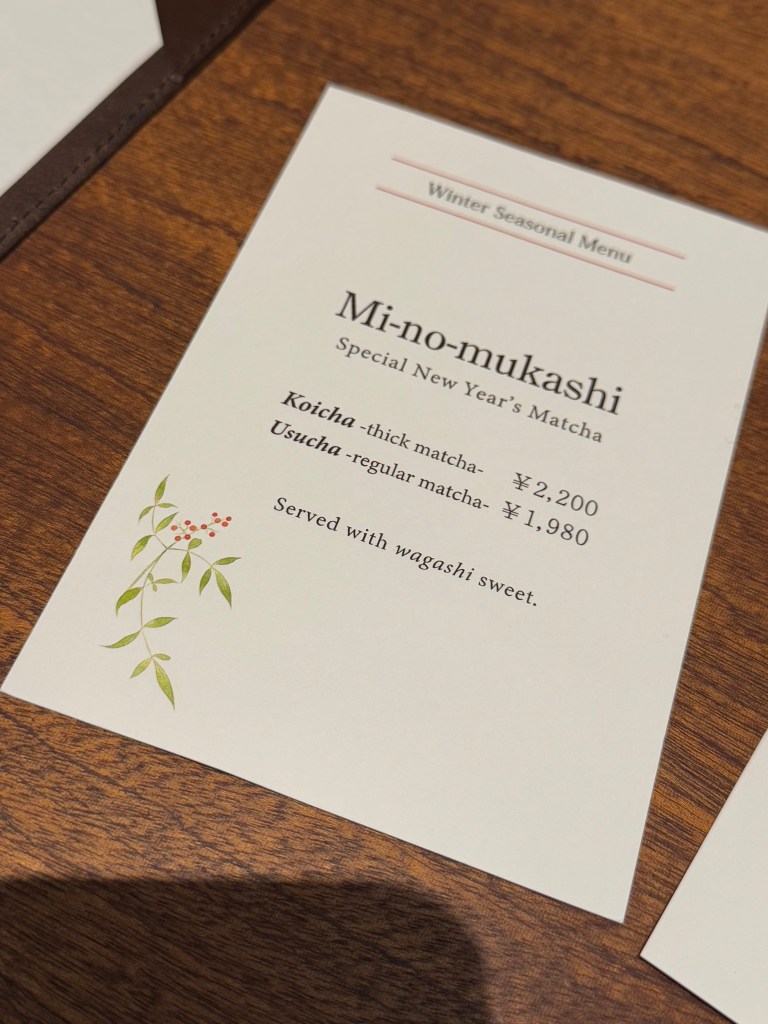 Winter Seasonal Menu
Mi-no-mukashi
Special New Year's Matcha
Koicha -thick matcha- ¥2,200
Usucha -regular matcha- ¥1,980
Served with wagashi sweet.